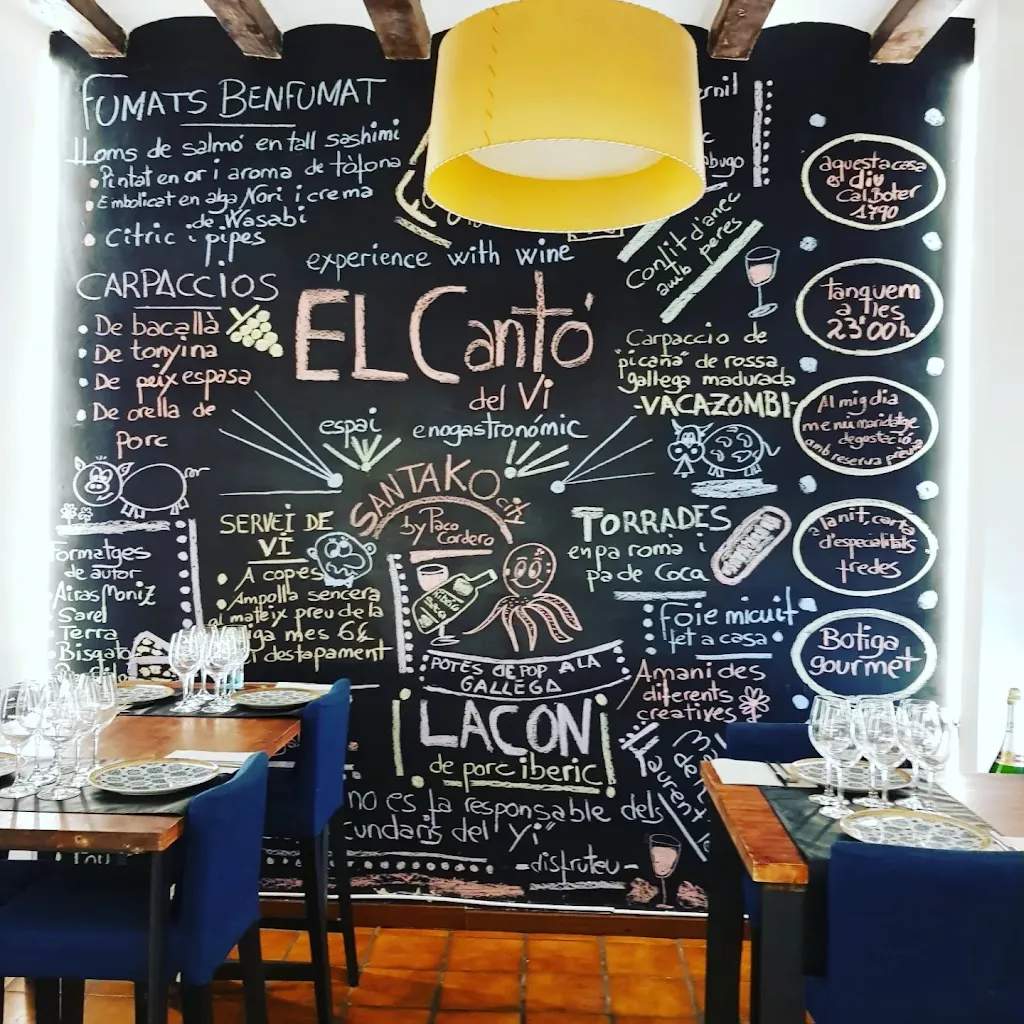 FUMATS BENFUMAT
Lloms de salmó en tall sashimi
• Pintat en or i aroma de tòfona
• Embolicat en alga Nori i crema
de Wasabi
• Citric i pipes
CARPACCIOS
• De bacallà
• De tonyina
• De peix espasa
• De orella de
Porc
formatges
de autor
Airas Moniz
Sarel
Terra
Bisgato
SERVEI DE
VÍ
• A copes
• Ampolla sencera
al mateix preu de la
mes 6€
destapament
experience with wine
EL Cantó
del Vi
espai enogastronómic
SANTAKO city
by Paco
Cordero
POTES de POP A LA
GALLEGA
LACON
de porc iberic
no es fa responsable dels
del "Yi"
-disfruteu-
Confit d'anec
amb peres
Carpaccio de
"picaña" de rossa
gallega madurada
-VACAZOMBI-
TORRADES
en pa roma i
pa de Coca
Foie micuit
fet a casa
Amanides
diferents
creatives
aquesta casa
es diu
Cal Boter
1790
tanquem
a lles
23'00h
Al mig dia
menú maridatge
degustació
amb reserva prèvia
a la nit, carta
d'especialitats
fredes
Botiga
gourmet